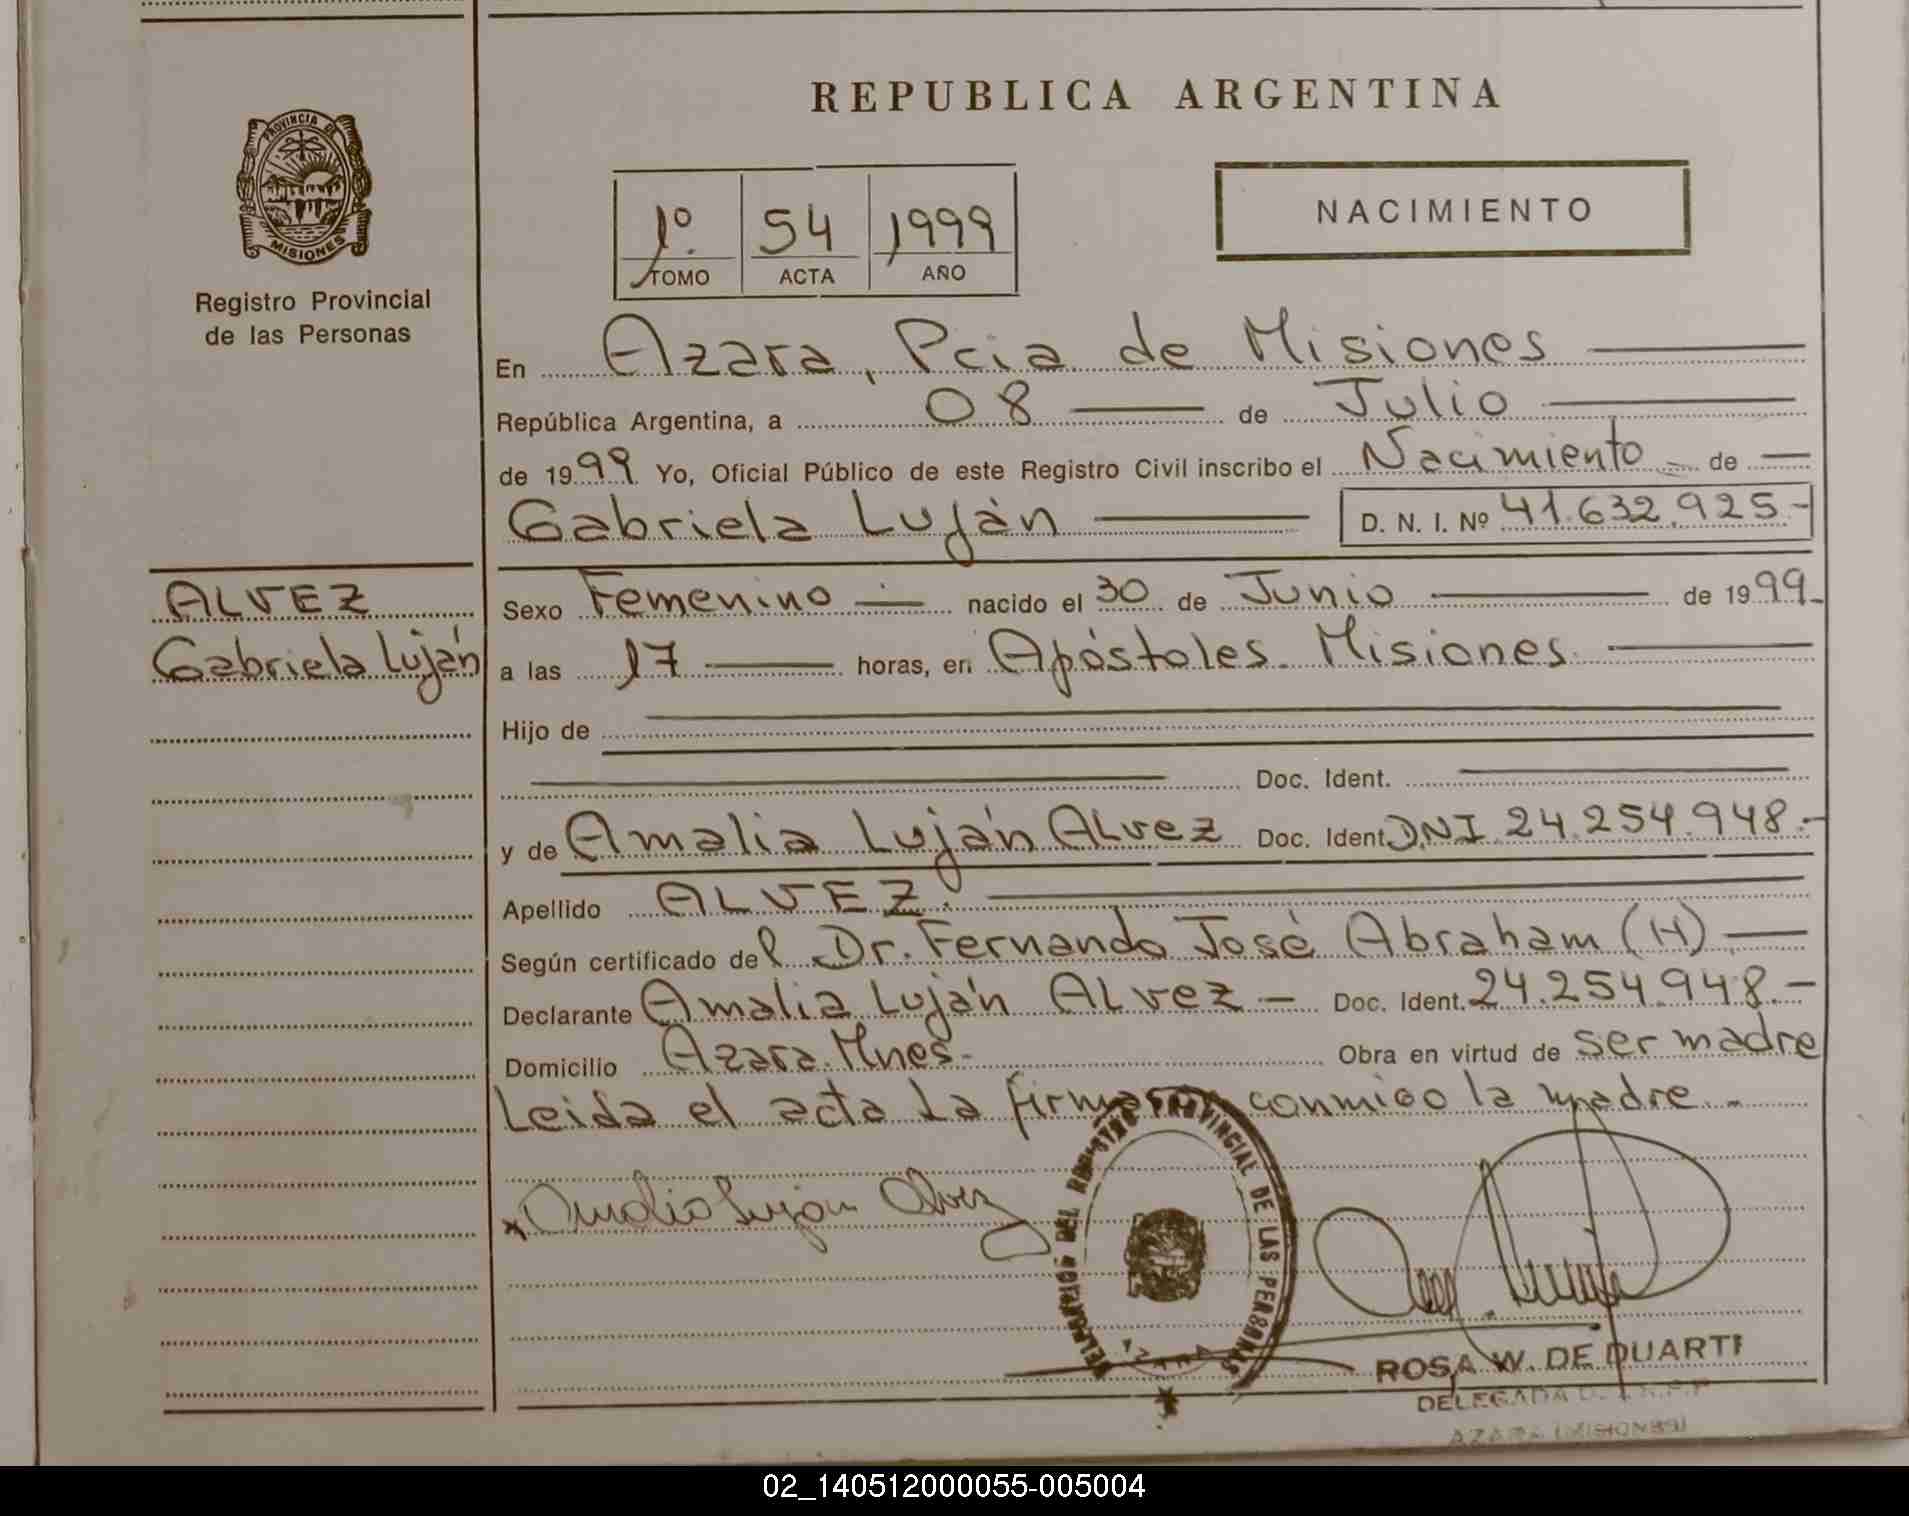 REPUBLICA ARGENTINA
PROVINCIA DE
MISIONES
Registro Provincial
de las Personas
1º 54 1999
TOMO ACTA AÑO
NACIMIENTO
En Azara, Pcia de Misiones
República Argentina, a 08 de Julio
de 1999 Yo, Oficial Público de este Registro Civil inscribo el Nacimiento de
Gabriela Luján D. N. I. Nº 41.632.925-
ALVEZ
Gabriela Luján
Sexo Femenino nacido el 30 de Junio de 1999
a las 17 horas, en Apóstoles. Misiones
Hijo de
Doc. Ident.
y de Amalia Luján ALvez Doc. Ident. DNI 24.254.948.-
Apellido ALVEZ.
Según certificado del Dr. Fernando José Abraham (H)
Declarante Amalia Luján ALvez - Doc. Ident. 24.254.948.-
Domicilio Azara. Mnes. Obra en virtud de ser madre
Leida el acta La firma conmigo la madre.-
Amalia Luján Alvez
DELEGACION DEL REGISTRO PROVINCIAL DE LAS PERSONAS
AZARA
ROSA W. DE DUARTE
DELEGADA
AZARA (MISIONES)
02_140512000055-005004